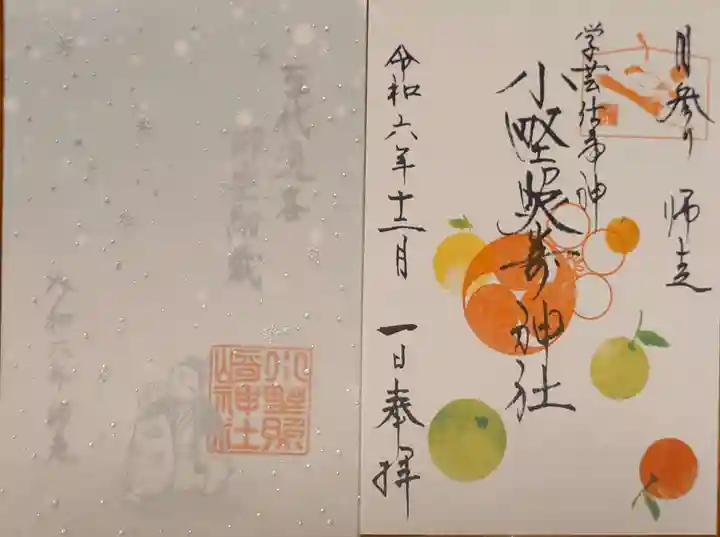 月参り 師走
学芸仕事神
小埜照嵜神社
令和六年十二月 一日奉拝
小野照
崎神社
令和六年師走